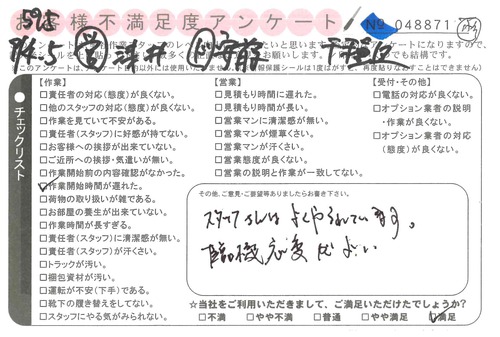 お客様不満足度アンケート
№ 048871
チェックリスト
【作業】
□責任者の対応(態度)が良くない。
□他のスタッフの対応(態度)が良くない。
□作業を見ていて不安がある。
□責任者(スタッフ)に好感が持てない。
□お客様への挨拶が出来ていない。
□ご近所への挨拶・気遣いが無い。
□作業開始前の内容確認がなかった。
☑作業開始時間が遅れた。
□荷物の取り扱いが雑である。
□お部屋の養生が出来ていない。
□作業時間が長すぎる。
□責任者(スタッフ)に清潔感が無い。
□責任者(スタッフ)が汗くさい。
□トラックが汚い。
□梱包資材が汚い。
□運転が不安(下手)である。
□靴下の履き替えをしてない。
□スタッフにやる気がみられない。
【営業】
□見積もり時間に遅れた。
□見積もり時間が長い。
□営業マンに清潔感が無い。
□営業マンが煙草くさい。
□営業マンが汗くさい。
□営業態度が良くない。
□営業の説明と作業が一致してない。
【受付・その他】
□電話の対応が良くない。
□オプション業者の説明
・作業が良くない。
□オプション業者の対応
(態度)が良くない。
その他、ご意見・ご要望等ありましたらお書き下さい。
スタッフさんはよくやられています。
臨機応変でよい
☆当社をご利用いただきまして、ご満足いただけたでしょうか?
□不満 □やや不満 □普通 □やや満足 ☑満足